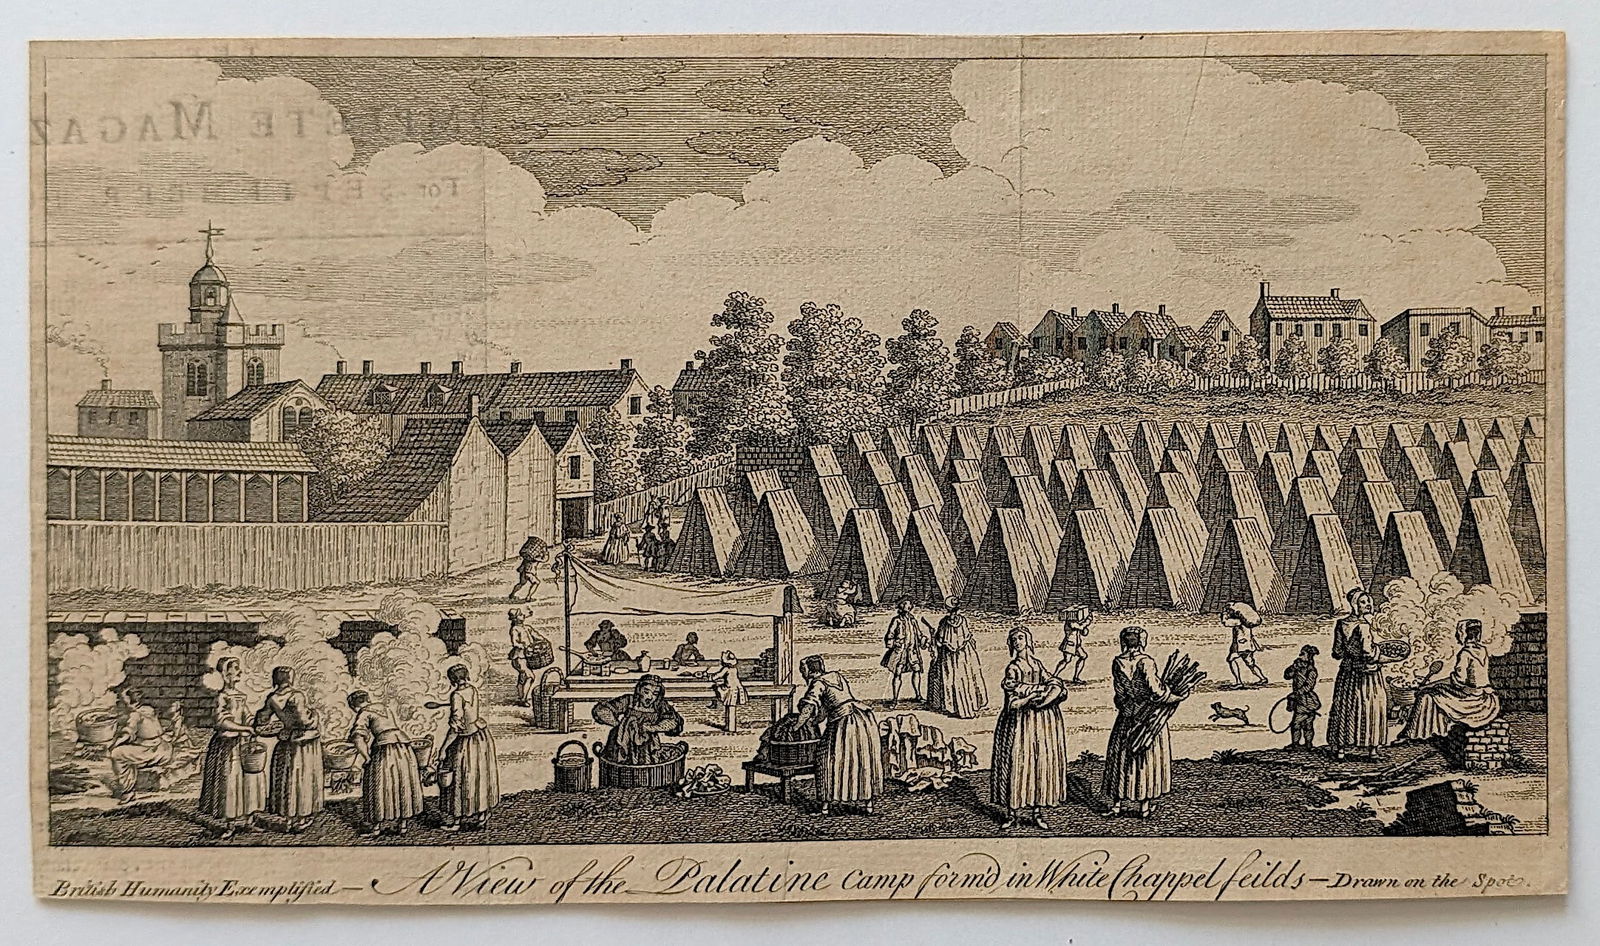 MPLETE MAGAZ
For SEPTEMBER
British Humanity Exemplified — A View of the Palatine Camp form'd in White Chappel feilds — Drawn on the Spot.